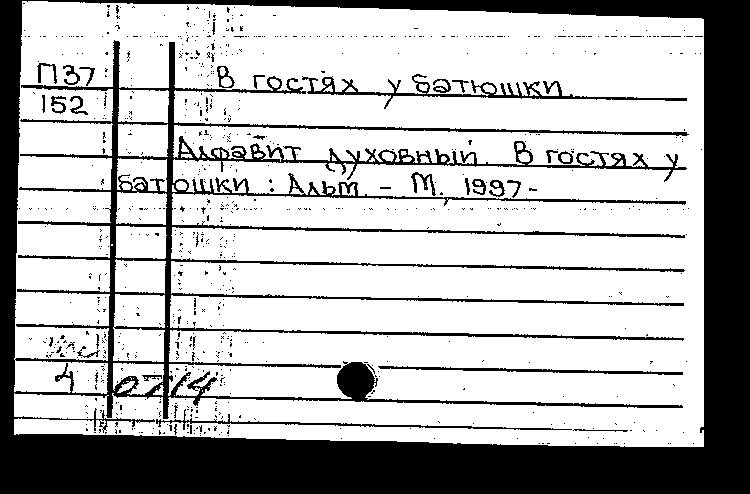 П37 В гостях у батюшки.
152
Алфавит духовный. В гостях у
батюшки : Альм. - М., 1997-
4 0714